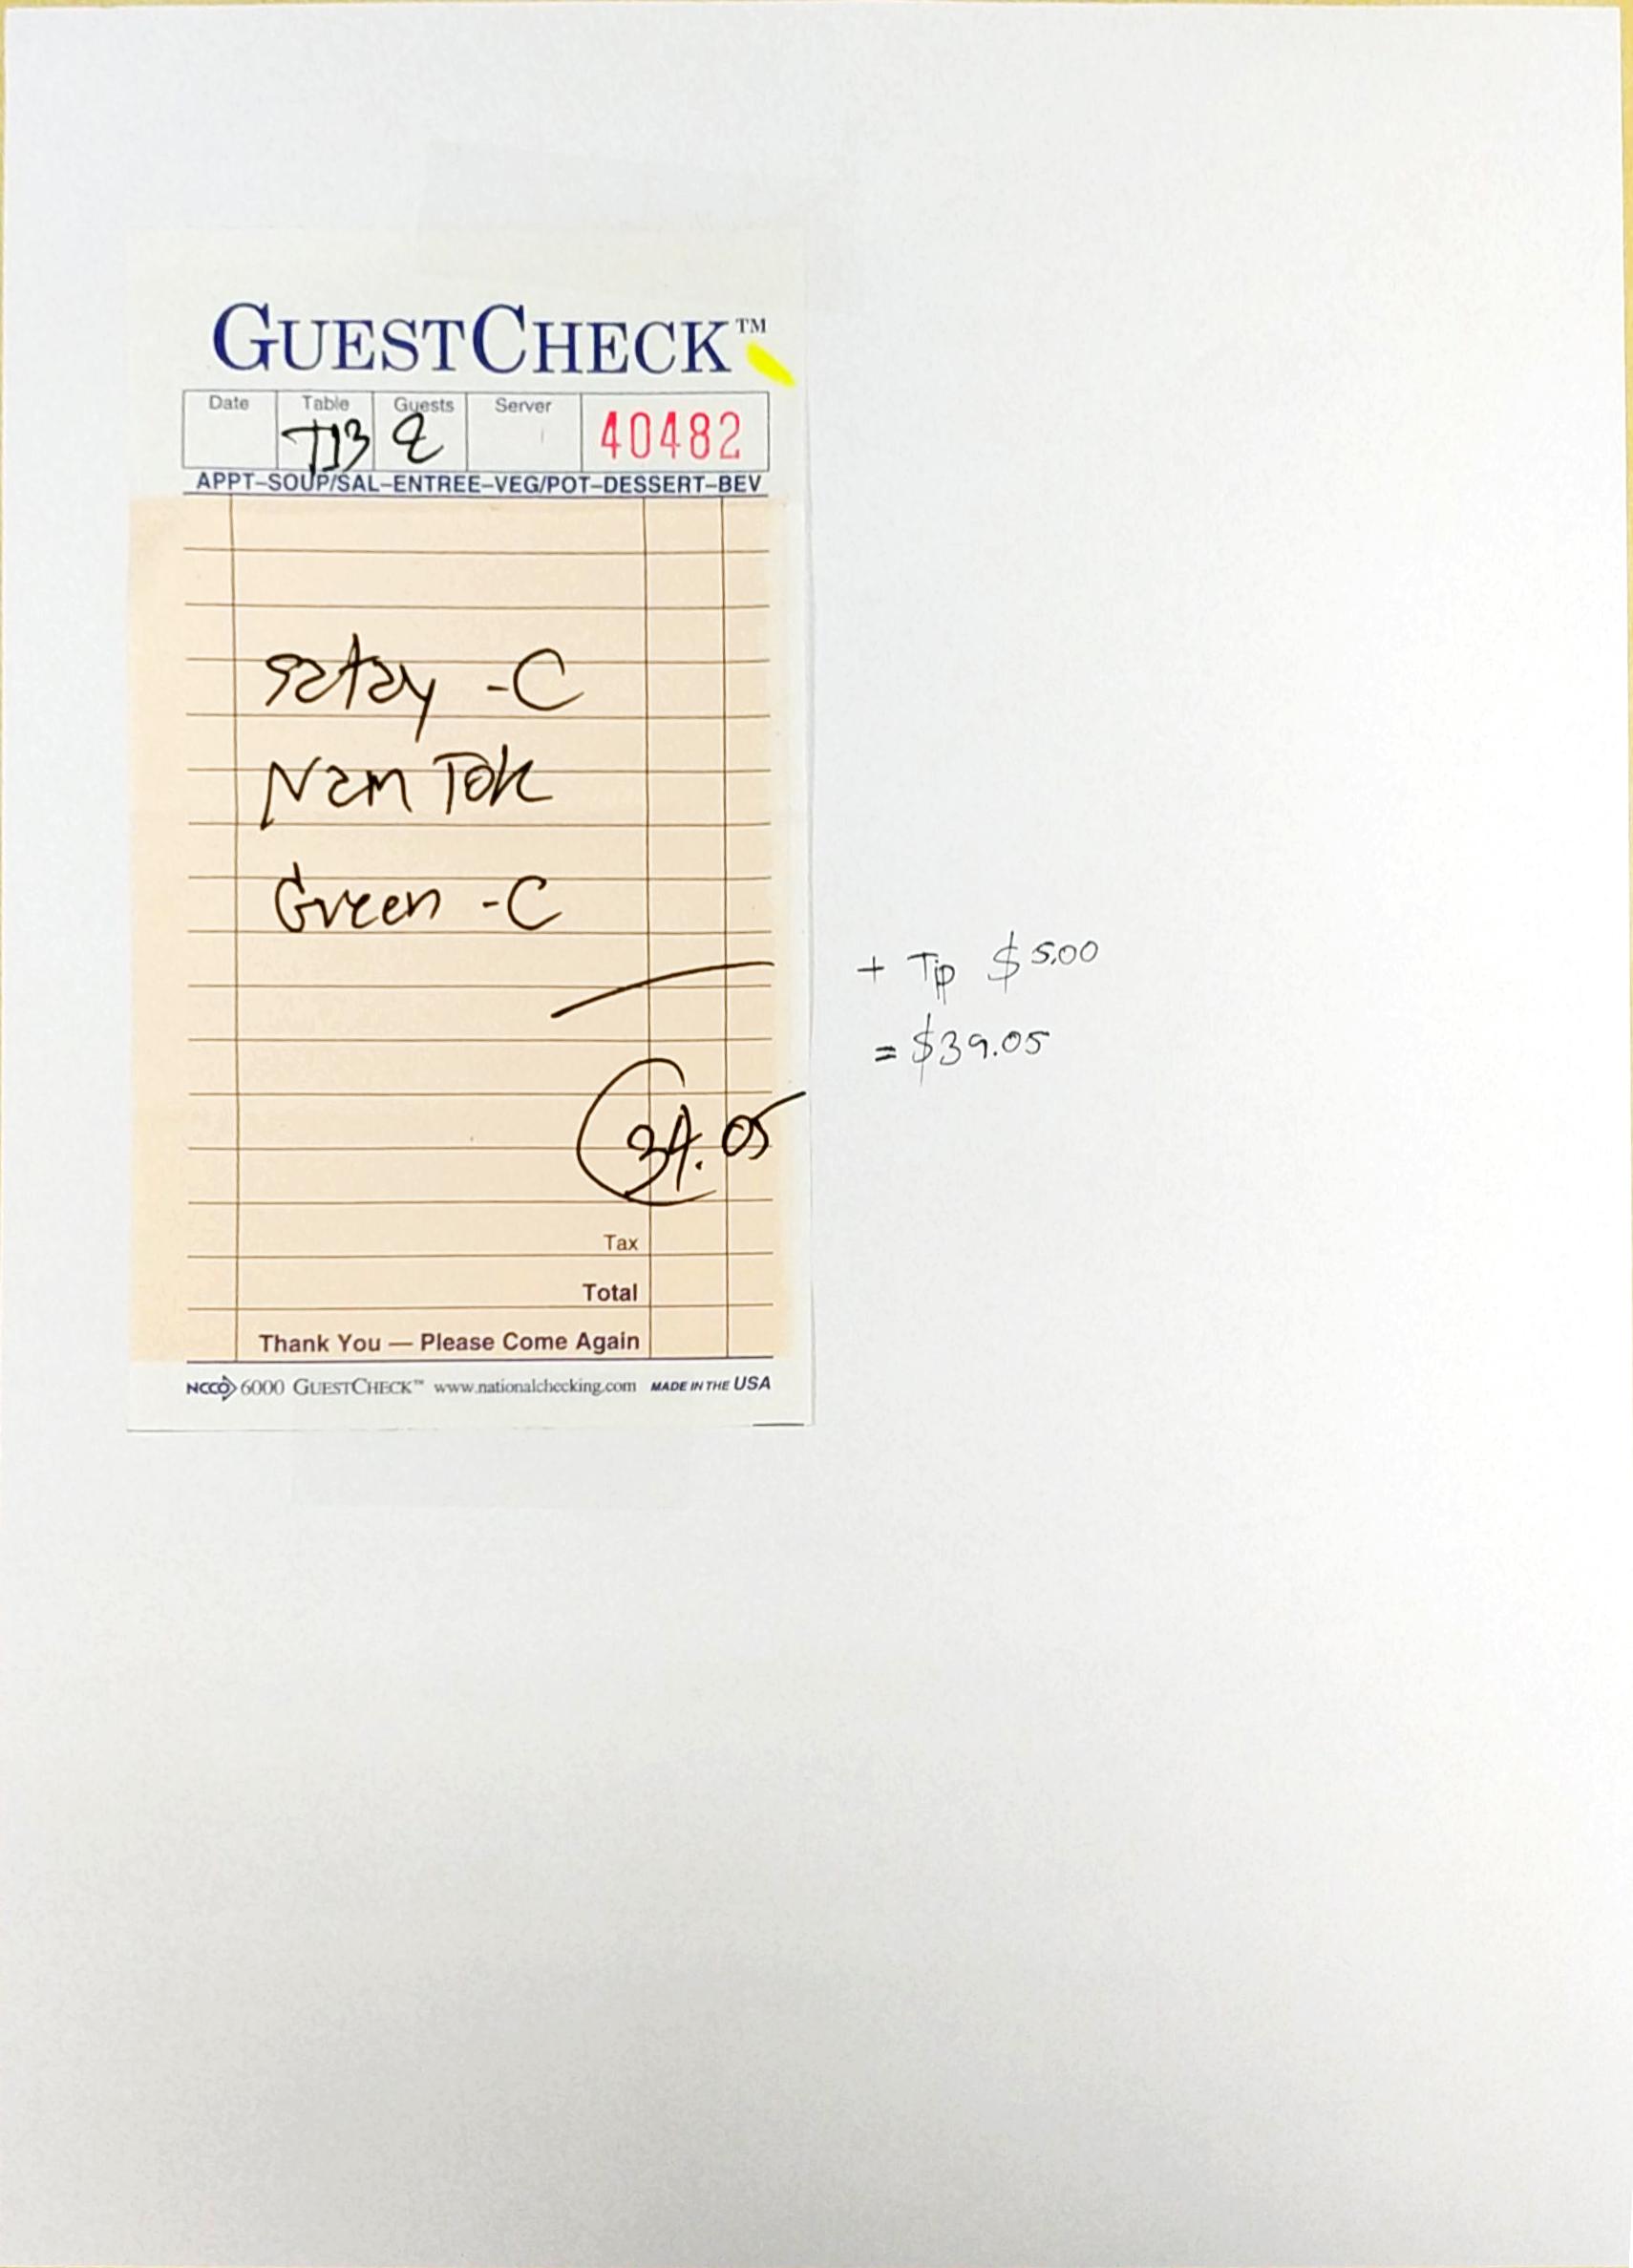 GUESTCHECK™
Date Table Guests Server
T13 2 40482
APPT–SOUP/SAL–ENTREE–VEG/POT–DESSERT–BEV
Satay -C
Nam Tok
Green -C
+ Tip $5.00
= $39.05
34.05
Tax
Total
Thank You — Please Come Again
NCCO 6000 GUESTCHECK™ www.nationalchecking.com MADE IN THE USA